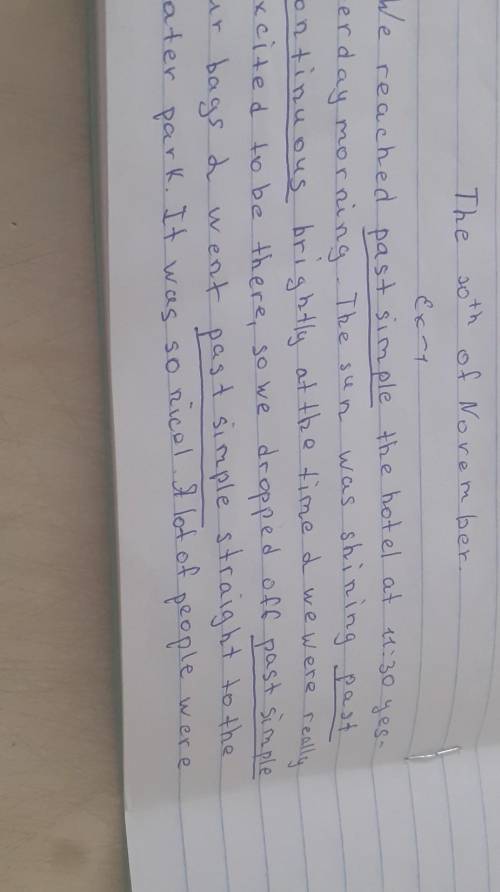 The 20th of November.
Ex-1
We reached past simple the hotel at 11:30 yes-
erday morning. The sun was shining past
ontinuous brightly at the time & we were really
xcited to be there, so we dropped off past simple
ur bags & went past simple straight to the
ater park. It was so nice! A lot of people were